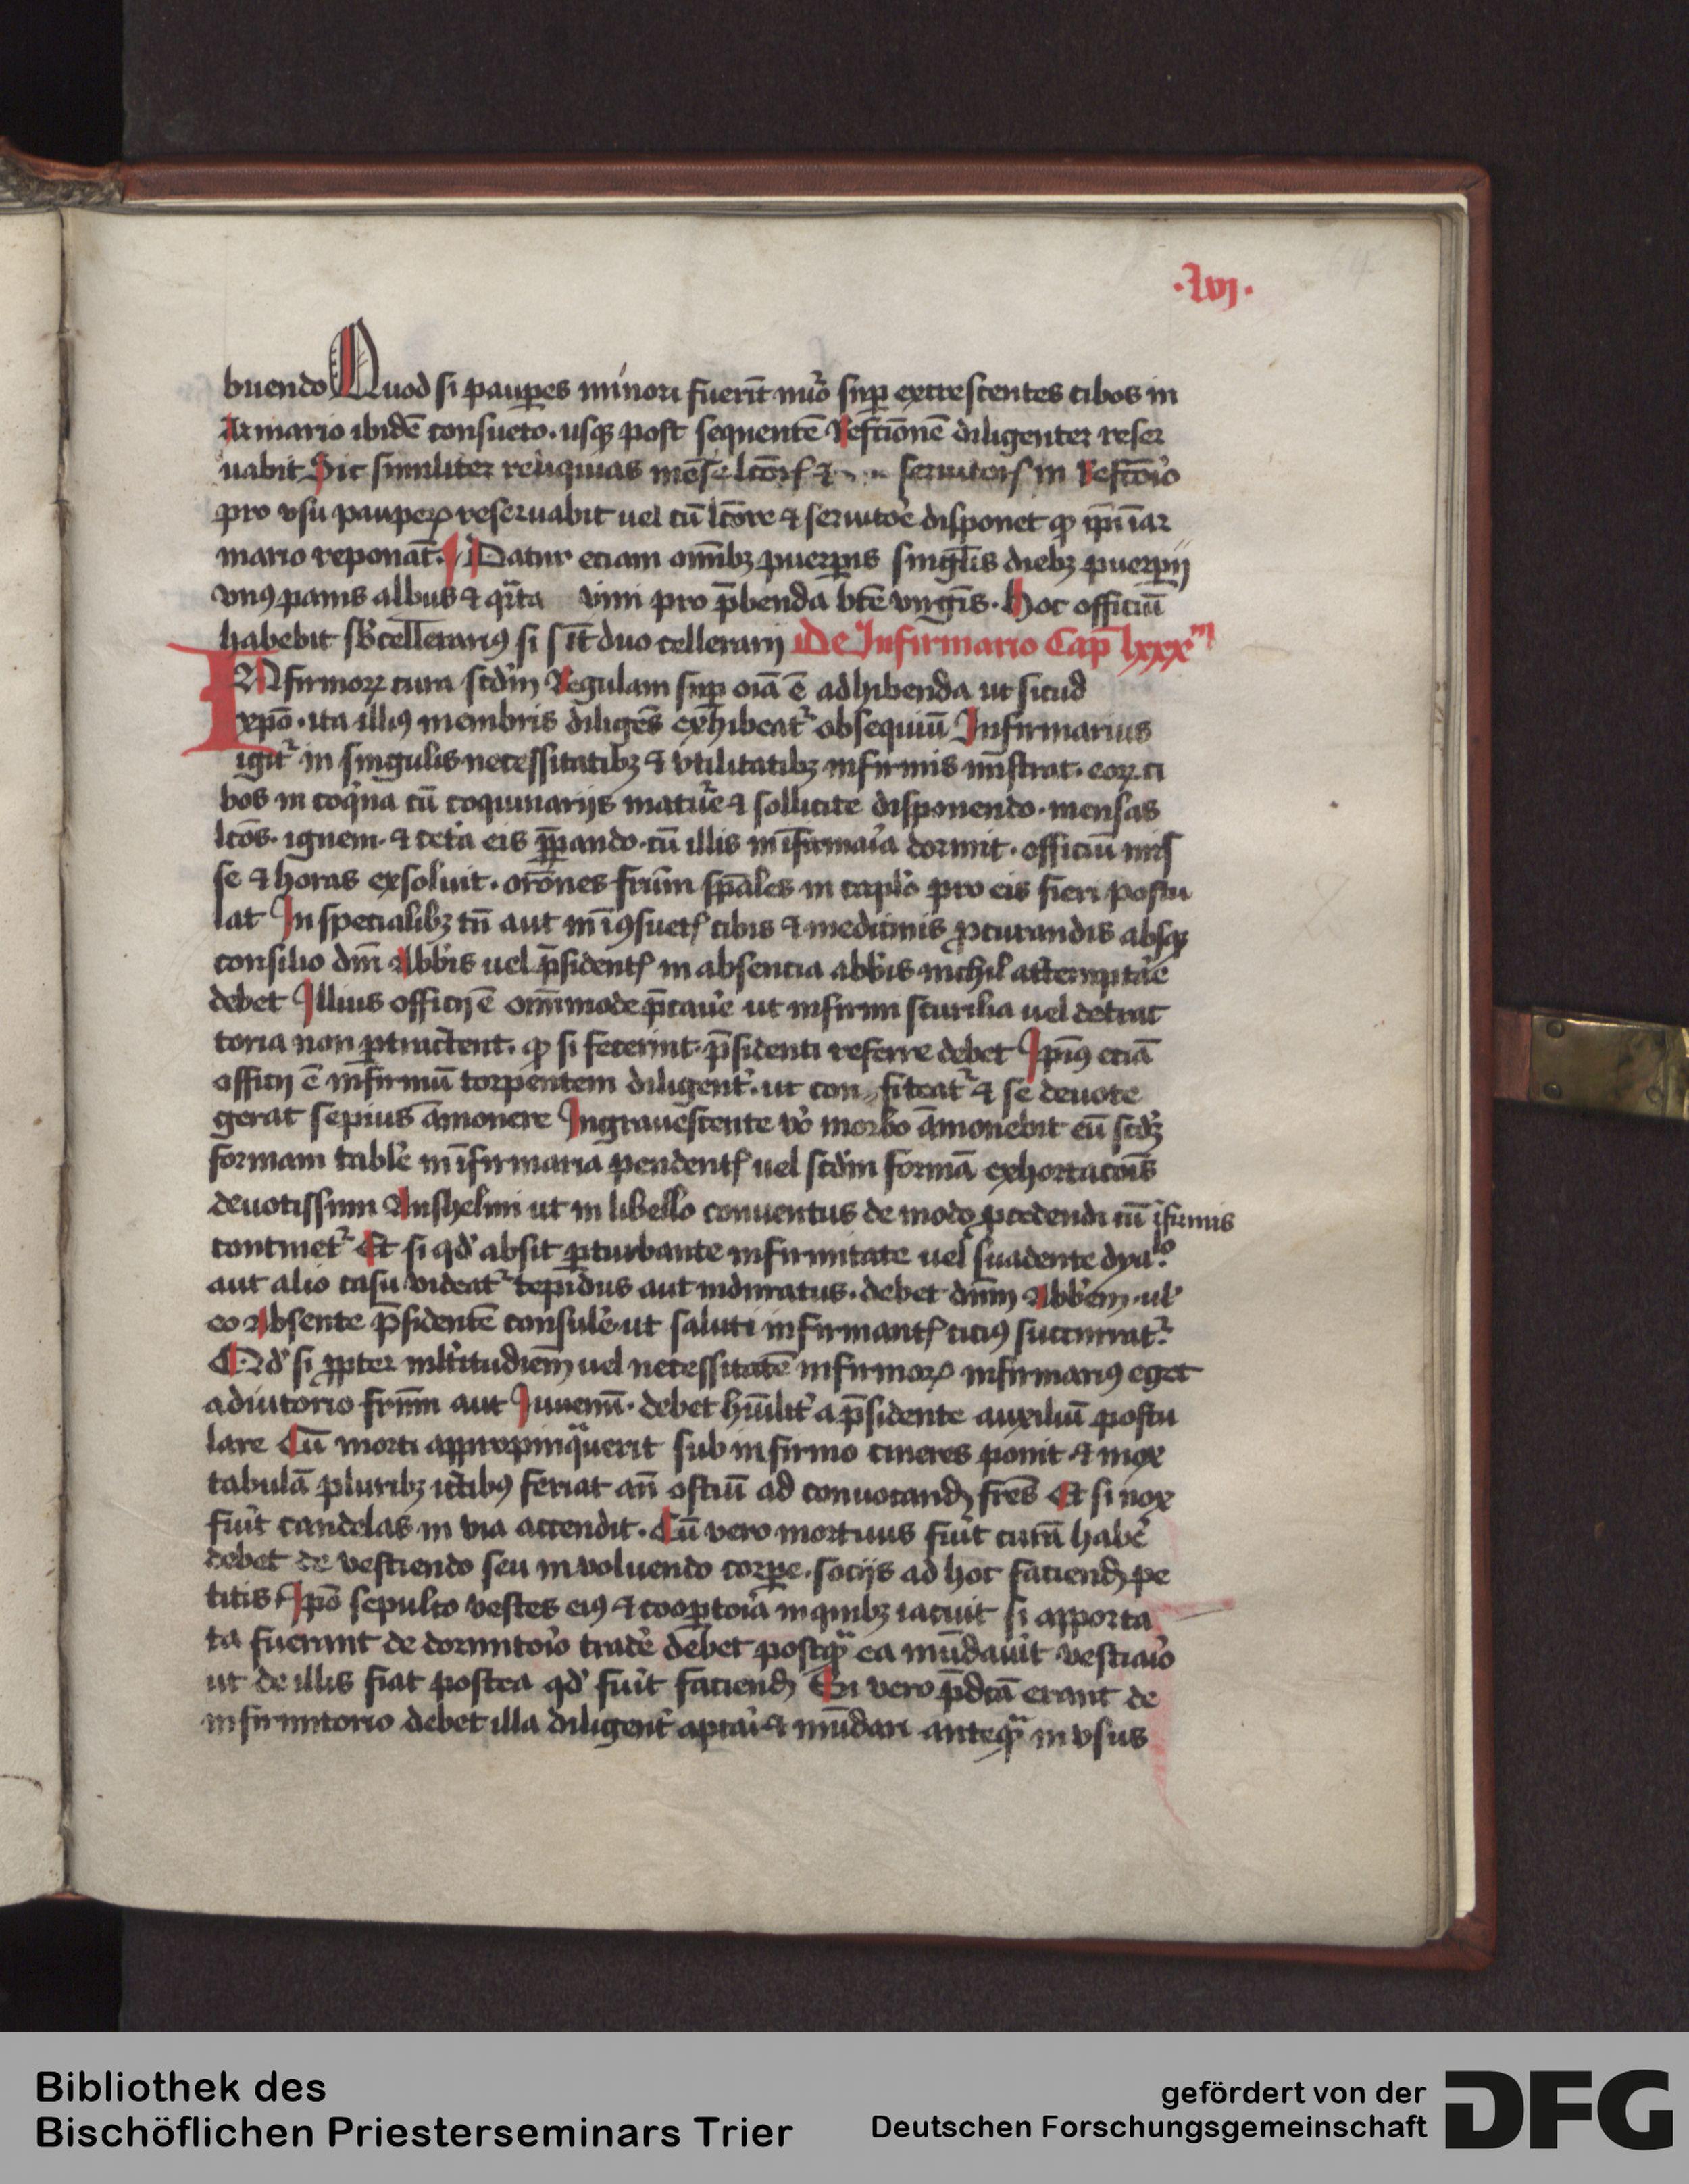 ·lvj·
buendo Quod si paupes minori fuerīt nūo sup excrescentes cibos in
Armario ibidē consueto· usqꝫ post sequentē Refctionē diligenter reser
uabit Sic similiter reliquias mēse lcōrꝭ & seruitorꝭ in Refctōio
pro vsu pauperꝝ reseruabit uel cū lctōre & seruitoē disponet qꝫ ipī ī ar
mario reponāt· Datur eciam omībꝫ puerperis singlis diebꝫ puerperij
vnꝰ panis albus & qrta vini pro p̄benda btē virgīs· Hoc officiū
habebit sbcellerariꝰ si sīt duo cellerarij De Infirmario Cap̄ lxxxm
INfirmoꝝ cura scdm Regulam sup oīa ē adhibenda ut sicud
xpō· ita illiꝰ membris diligēs exhibeatr obsequiū Infirmarius
igitr in singulis necessitatibꝫ & vtilitatibꝫ infirmis mīstrat· eoꝝ ci
bos in coqina cū coquinarijs matue & sollicite disponendo· mensas
lcōs· ignem· & ceta eis p̄pando· cū illis in īfirmaia dormit· officiū mis
se & horas exsoluit· orōnes frūm spāles in caplo pro eis fieri postu
lat In specialibꝫ tn̄ aut in īꝯsuetꝭ cibis & medicinis ꝓcurandis absqꝫ
consilio dnī Abbis uel p̄sidentꝭ in absencia abbis nichil attemptae
debet Illius officij ē omīmode p̄caue ut infirmi scurilia uel detrac
toria non ꝑtractent· qꝫ si fecerint· p̄sidenti referre debet Ipiꝰ eciā
officij ē infirmū torpentem diligent· ut con fiteatr & se deuote
gerat sepius āmonere Ingrauescente vo morbo āmonebit eū scdꝫ
formam table in īfirmaria pendentꝭ uel scdm formā exhortacōis
deuotissimi Anshelmi ut in libello conuentus de modo ꝓcedendi cū īfirmis
continetr Et si qd absit ꝑturbante infirmitate uel suadente dyalo
aut alio casu videatr tepidus aut induratus· debet dnm Abbem· ul
eo absente p̄sidentē consule ut saluti infirmantꝭ ciciꝰ succurratr
Qd si ꝓpter mltitudiem uel necessitatē infirmoꝝ infirmariꝰ eget
adiutorio frm aut Iuuenū· debet hūilit a p̄sidente auxiliū postu
lare Cū morti appropinqauerit sub infirmo cineres ponit & mox
tabulā pluribꝫ ictibꝰ feriat an̄ ostiū ad conuocand frēs Et si nox
fuit candelas in via accendit· Cū vero mortuus fuit curā habe
debet de vestiendo seu inuoluendo corꝑe· socijs ad hoc faciend pe
titis Ipō sepulto vestes eiꝰ & cooptoia in quibꝫ iacuit si apporta
ta fuerant de dormitoio trade debet postqa ea mūdauit vestiaio
ut de illis fiat postea qd fuit faciend Si vero p̄dcā erant de
infirmitorio debet illa diligent aptai & mūdari anteqa in vsus
Bibliothek des
Bischöflichen Priesterseminars Trier
gefördert von der
Deutschen Forschungsgemeinschaft
DFG